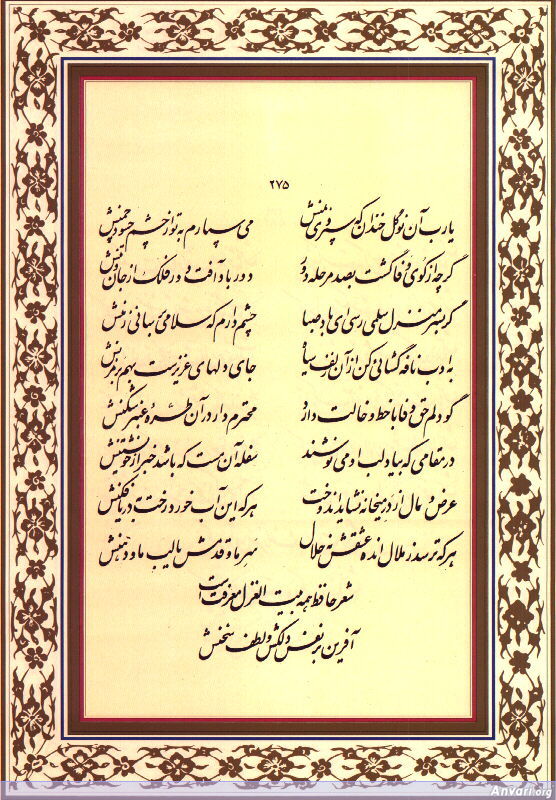 ۲۷۵
یارب آن نوگل خندان که سپردی بمنش می سپارم به تو از چشم حسود چمنش
گرچه از کوی وفا گشت بصد مرحله دور دور باد آفت دور فلک از جان و تنش
گر بسر منزل سلمی رسی ای باد صبا چشم دارم که سلامی برسانی ز منش
به ادب نافه گشائی کن از آن زلف سیاه جای دلهای عزیزست بهم بر مزنش
گو دلم حق وفا با خط و خالت دارد محترم دار در آن طره عنبر شکنش
در مقامی که بیاد لب او می نوشند سفله آن مست که باشد خبر از خویشتنش
عرض و مال از در میخانه نشاید اندوخت هر که این آب خورد رخت به دریا فکنش
هر که ترسد ز ملال انده عشقش نه حلال سر ما و قدمش یا لب ما و دهنش
شعر حافظ همه بیت الغزل معرفت است
آفرین بر نفس دلکش و لطف سخنش
Anvari.org